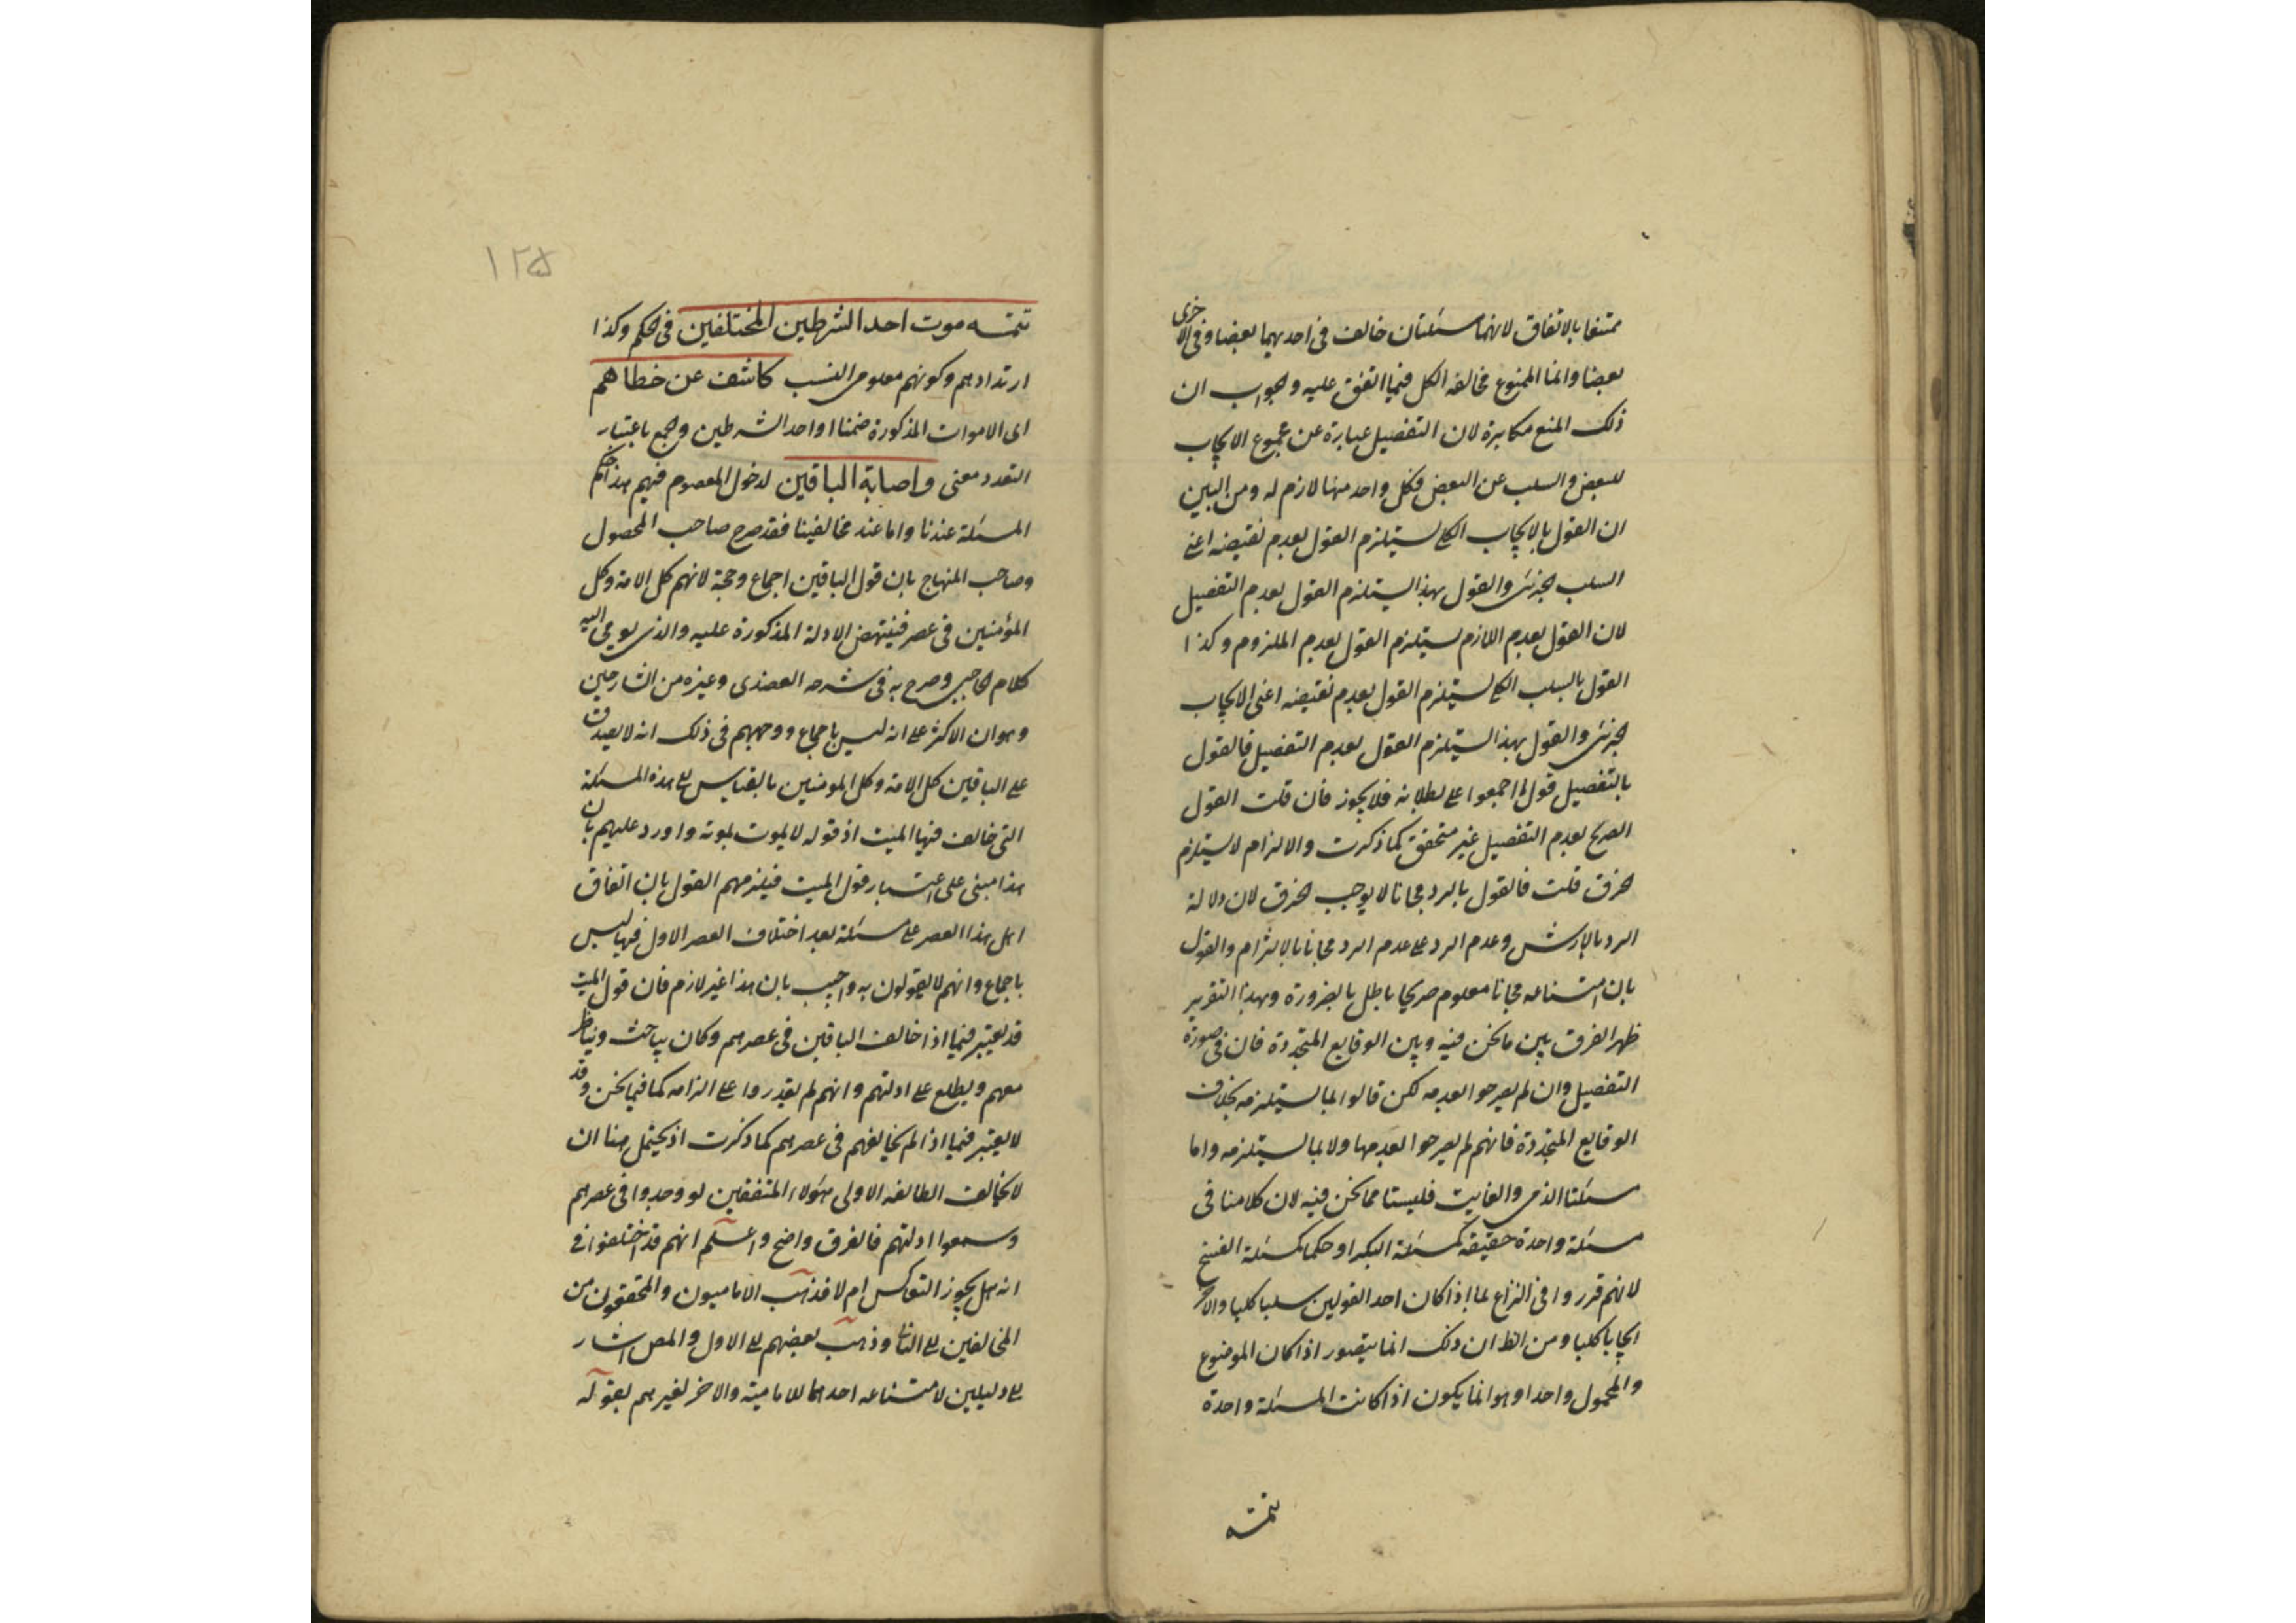 ممتنعا بالاتفاق لانهما مسئلتان خالف فى احديهما بعضا وفى الاخرى
بعضا وانما الممنوع مخالفة الكل فيما اتفق عليه والجواب ان
ذلك المنع مكابرة لان التفصيل عبارة عن مجموع الايجاب
للبعض والسلب عن البعض فكل واحد منهما لازم له ومن البين
ان القول بالايجاب الكلى يستلزم القول بعدم نقيضه اعنى
السلب الجزئى والقول بهذا يستلزم القول بعدم التفصيل
لان القول بعدم اللازم يستلزم القول بعدم الملزوم وكذا
القول بالسلب الكلى يستلزم القول بعدم نقيضه اعنى الايجاب
الجزئى والقول بهذا يستلزم القول بعدم التفصيل فالقول
بالتفصيل قول لما اجمعوا على بطلانه فلا يجوز فان قلت القول
الصريح بعدم التفصيل غير متحقق كما ذكرت والالزام لا يستلزم
الخرق قلت فالقول بالرد مجانا لا يوجب الخرق لان دلالة
الرد بالارش وعدم الرد على عدم الرد مجانا بالالتزام والقول
بان امتناعه مجانا معلوم صريحا باطل بالضرورة وبهذا التقرير
ظهر الفرق بين ما نحن فيه وبين الوقايع المتجددة فان فى صورة
التفصيل وان لم يصرحوا بعدمه لكن قالوا بما يستلزمه بخلاف
الوقايع المتجددة فانهم لم يصرحوا بعدمها ولا بما يستلزمه واما
مسئلتا الذمى والغايب فليستا مما نحن فيه لان كلامنا فى
مسئلة واحدة حقيقة كمسئلة البكر او حكما كمسئلة الفسخ
لانهم قرروا فى النزاع بما اذا كان احد القولين سلبا كليا والاخر
ايجابا كليا ومن الظ ان ذلك انما يتصور اذا كان الموضوع
والمحمول واحدا وهو انما يكون اذا كانت المسئلة واحدة
تتمته
١٢۵
تتمته موت احد الشرطين المختلفين فى الحكم وكذا
ارتدادهم وكونهم معلومى النسب كاشف عن خطاهم
اى الاموات المذكورة ضمنا او احد الشرطين والجمع باعتبار
التعدد معنى واصابة الباقين لدخول المعصوم فيهم هذا حكم
المسئلة عندنا واما عند مخالفينا فقد صرح صاحب المحصول
وصاحب المنهاج بان قول الباقين اجماع وحجة لانهم كل الامة وكل
المؤمنين فى عصر فينتهض الادلة المذكورة عليه والذى يومى اليه
كلام الحاجبى وصرح به فى شرحه العضدى وغيره من الشارحين
وهو ان الاكثر على انه ليس باجماع ووجههم فى ذلك انه لا يصدق
على الباقين كل الامة وكل المومنين بالقياس الى هذه المسئلة
التى خالف فيها الميت اذ قوله لا يموت بموته واورد عليهم بان
هذا مبنى على اعتبار قول الميت فيلزمهم القول بان اتفاق
اهل هذا العصر على مسئلة بعد اختلاف العصر الاول فيها ليس
باجماع وانهم لا يقولون به واجيب بان هذا غير لازم فان قول الميت
قد يعتبر فيما اذا خالف الباقين فى عصرهم وكان يباحث ويناظر
معهم ويطلع على ادلتهم وانهم لم يقدروا على الزامه كما فيما نحن وقد
لا يعتبر فيما اذا لم يخالفهم فى عصرهم كما ذكرت اذ يحتمل هنا ان
لا يخالف الطائفة الاولى هؤلاء المتفقين لو وجدوا فى عصرهم
وسمعوا ادلتهم فالفرق واضح واعلم انهم قد اختلفوا فى
انه هل يجوز التعاكس ام لا فذهب الاماميون والمحققون من
المخالفين الى الثانى وذهب بعضهم الى الاول والمص اشار
الى دليلين لامتناعه احدهما للامامية والاخر لغيرهم بقوله